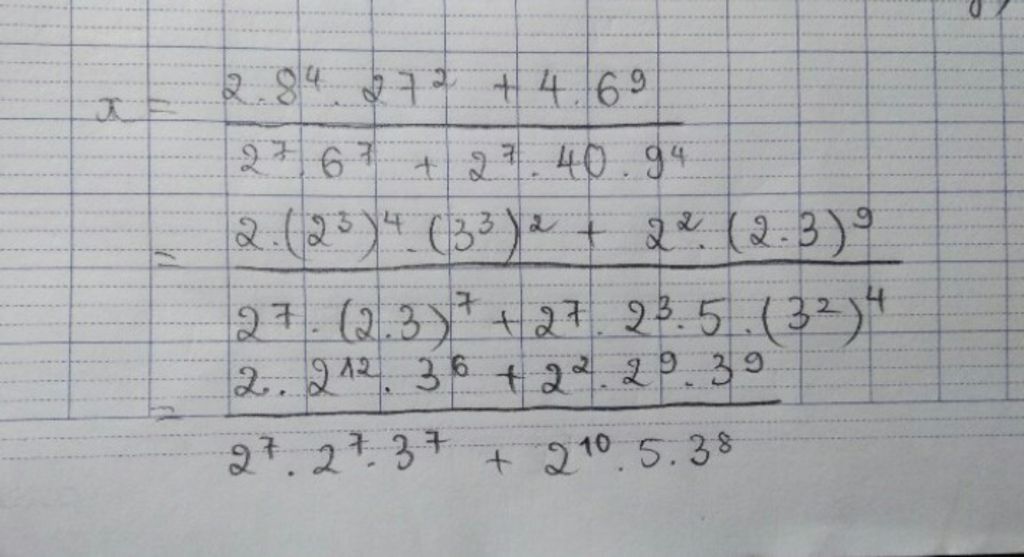 x = \frac{2.8^4.27^2 + 4.6^9}{2^7.6^7 + 2^7.40.9^4}
= \frac{2.(2^3)^4.(3^3)^2 + 2^2.(2.3)^9}{2^7.(2.3)^7 + 2^7.2^3.5.(3^2)^4}
= \frac{2.2^{12}.3^6 + 2^2.2^9.3^9}{2^7.2^7.3^7 + 2^{10}.5.3^8}